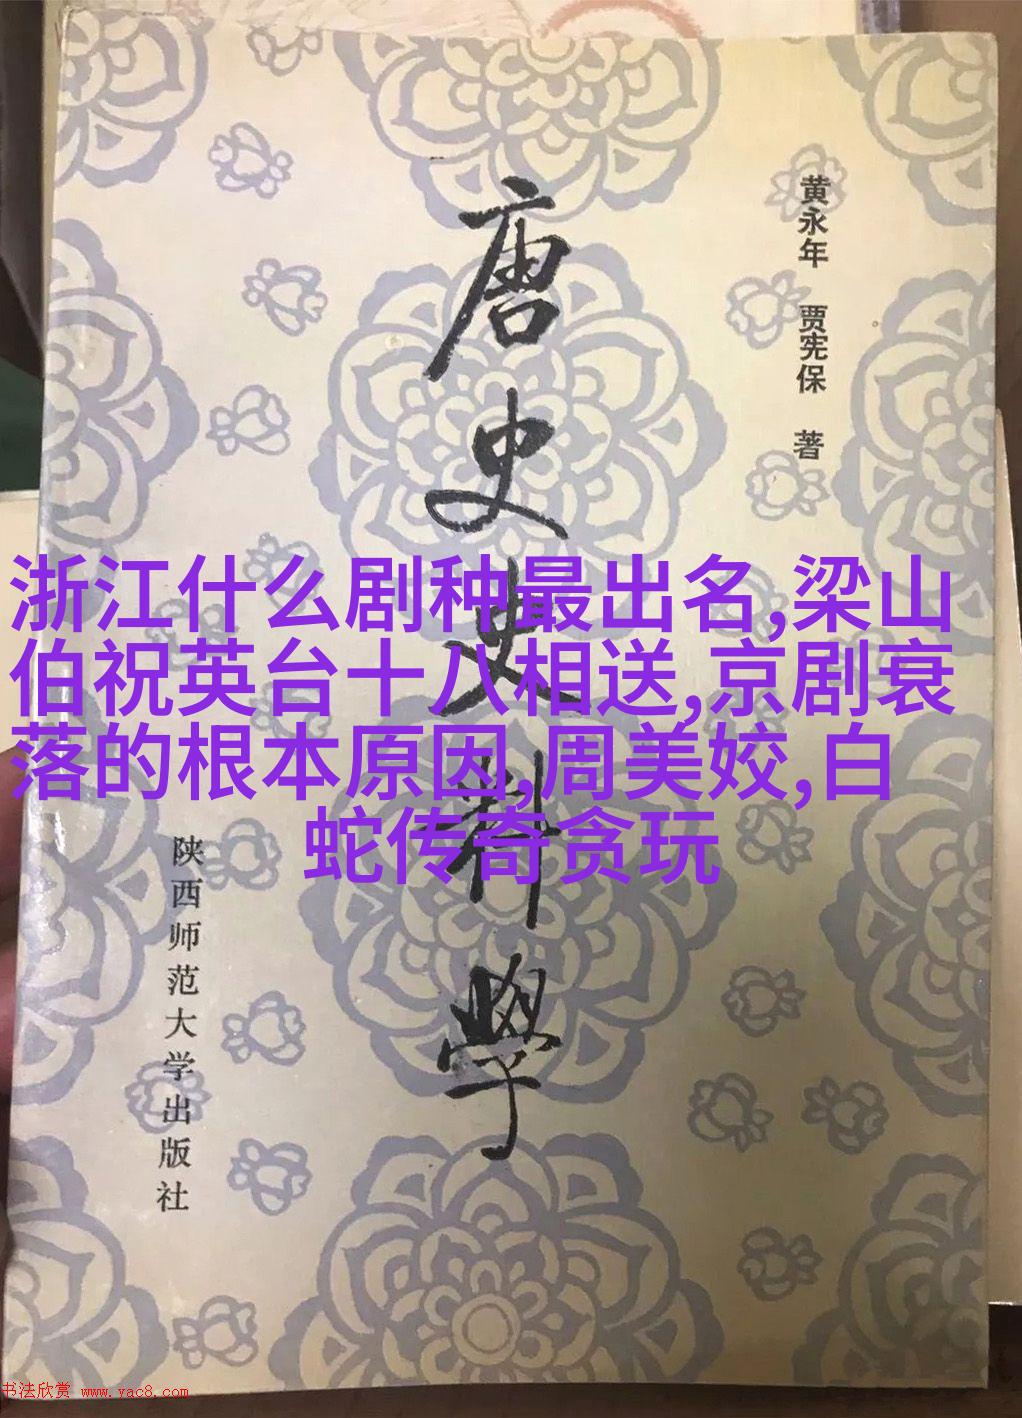 唐史史料学
黄永年 贾宪保 著
浙江什么剧种最出名,梁山
伯祝英台十八相送,京剧衰
落的根本原因,周美姣,白
蛇传奇贪玩
陕西师范大学出版社
书法欣赏 www.yac8.com